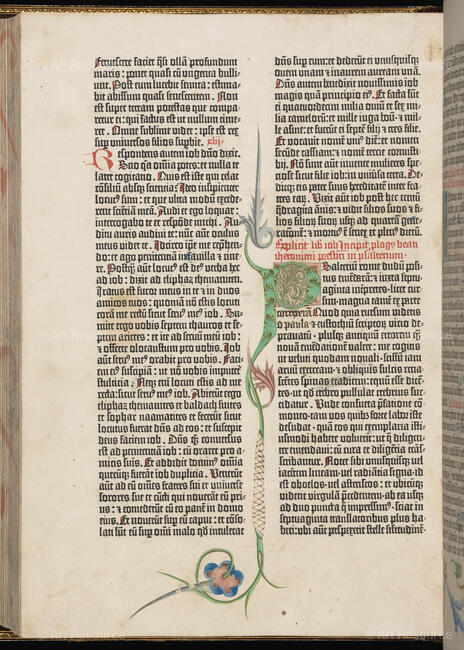 Fervescere faciet q̃si ollã profundum
maris: ponet quasi cũ vngenta bulli-
unt. Post eum lucebit semita: estima-
bit abissum quasi senescentem. Non
est super terram potestas que compa-
retur ei: qui factus est ut nullum time-
ret. Omne sublime videt: ipse est rex
sup universos filios supbie. xlij
Respondens autem iob dño dixit.
Scio q̃a oĩa potes: et nulla te
latet cogitatio. Quis est iste qui celat
cõsiliũ absq; sciencia? Ideo insipienter
locut9 sum: et que ultra modũ exede-
rent sciẽtiã meã. Audi et ego loquar:
interrogabo te et respõde michi. Au-
ditu auris audivi te: nũc aut oculus
meus videt te. Idcirco ip̃e me rep̃hen-
do: et ago penitenciam ĩ favilla & cine-
re.
ad iob: dixit ad eliphaz themanitem.
Iratus est furor meus in te & in duos
amicos tuos: quoniã nõ estis locuti
corã me rectũ sicut serv9 me9 iob. Su-
mite ergo vobis septem thauros et se-
ptem arietes: et ite ad servũ meũ iob
& offerte olocaustum pro vobis. Iob
aũt serv9 me9 orabit pro vobis. Faci-
em ei9 suscipiã: ut nõ vobis imputet~
stulticia. Neq; enĩ locuti estis ad me
recta: sicut serv9 me9 iob. Abierũt ergo
eliphaz themanites et baldach suites
et sophar naamatites et fecerũt sicut
locutus fuerat dñs ad eos: et suscepit
dñs faciem iob. Dñs q̃q; conversus
est ad penitentiã iob: cũ oraret pro a-
micis suis. Et addidit domin9 omĩa
quecũq; fuerãt iob duplicia. Venerũt
aũt ad eũ om̃es fratres sui et universe
sorores sue et cũcti qui noverãt eũ pri-
us: & comederũt cũ eo panẽ in domo
eius. Et moverũt sup eũ caput: et cõso-
lati sũt eũ sup om̃i malo qd̃ intulerat
dñs sup eum: et dederũt ei unusquisq;
ovem vnam & inaurem auream unã.
Dñs autem bñdixit novissimis iob
magis quã principio ei9. Et facta sũt
ei quatuordecim milia oviũ et sex mi-
lia camelorũ: et mille iuga boũ & mil-
le asine: et fuerũt ei septẽ filij & tres filie.
Et vocavit nomẽ uni9 diẽ: et nomen
secũde cassiam: & nomẽ tercie cornusti-
bij. Nõ sunt aũt invente mulieres spe-
ciose sicut filie iob: in uniṽsa terra. De-
ditq; eis pater suus hereditatẽ inter fra-
tres earũ. Vixit aũt iob post hec centũ
q̃dragĩta ãnis: & vidit filios suos & fi-
lios filiorũ suorũ usq; ad quartã gene-
rationẽ: & mortu9 ẽ senex et plen9 dierũ.
Explicit lib̃ iob Incipit plog9 beati
iheronimi pr̃sbiri in psalterium
Psalterium rome dudũ posi-
tus emendarã: & iuxta septu-
aginta int̃pretes licet cur-
sim magna tamẽ ex parte
correxerã. Quod quia rursum videtis
o paula & eustochiũ scriptorũ vicio de-
pravatũ: plusq; antiquũ errorem q̃
novam emẽdationẽ valere: me cogitis
ut veluti quodam novali scissũ iam
arvũ exerceam: & obliquis sulcis rena-
scẽtes spinas eradicem: equũ esse dicẽ-
tes ut qd̃ crebro pullulat crebrius suc-
cidatur. Vnde consueta p̃fatione cõ-
moneo tam vos quibz forte labor iste
desudat quã eos qui exemplaria isti-
usmodi habere voluerĩt: ut q̃ diligen-
ter emendavi: cũ cura et diligẽtia trãs-
scribantur. Notet sibi unusquisq; vel
iacẽtem lineam vel radiãtia signa id
est obolos vel astericos: et ubicũq;
viderit virgulã p̃cedentem ab ea usq;
ad duo puncta q̃ impressim9 sciat in
septuaginta translatoribus plus ha-
beri: ubi aũt